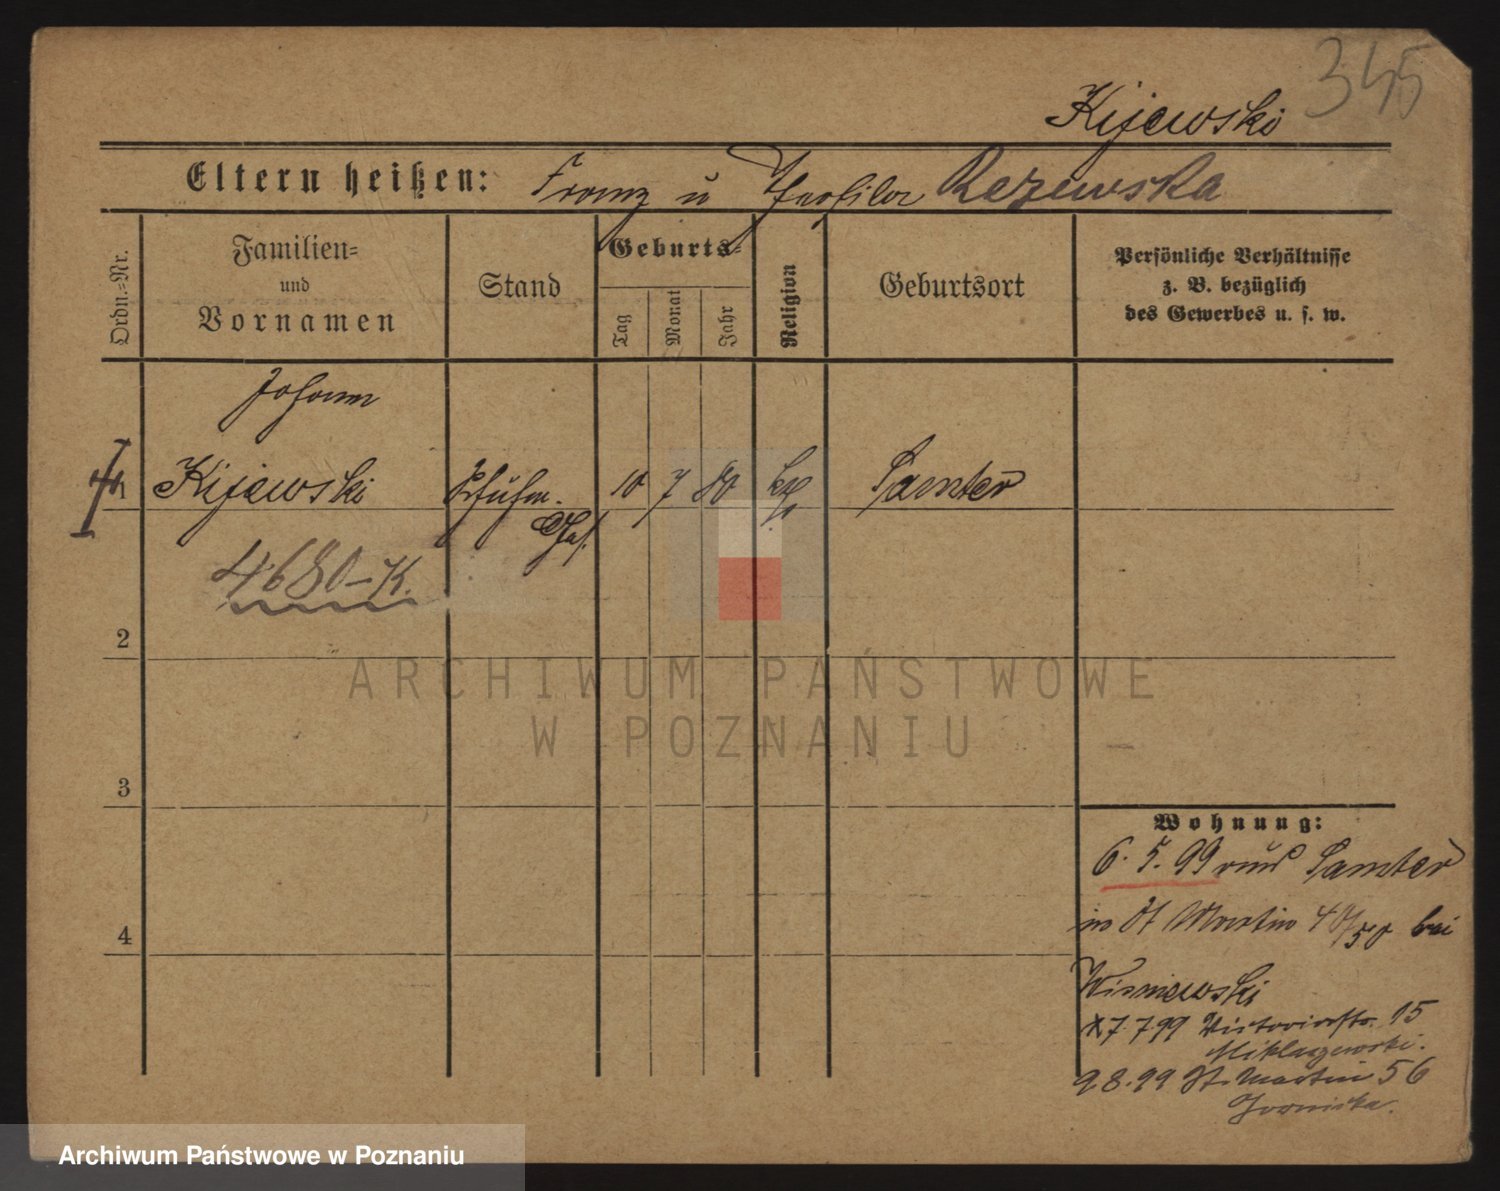 345
Kijewski
Eltern heißen: Franz u Theofila Rezewska
Ordn.=Nr.
Familien=
und
Vornamen
Stand
Geburts=
Tag
Monat
Jahr
Religion
Geburtsort
Persönliche Verhältnisse
z. B. bezüglich
des Gewerbes u. s. w.
Johann
1 Kijewski Schuhm. 10 7 80 kth Samter
Ges.
4680-K.
2
3
4
ARCHIWUM PAŃSTWOWE
W POZNANIU
Wohnung:
6. 5. 99 aus Samter
in St Martin 49/50 bei
Wisniewski
7.7.99 Victoriastr. 15
Miklaszewski.
9.8.99 St. Martin 56
Archiwum Państwowe w Poznaniu